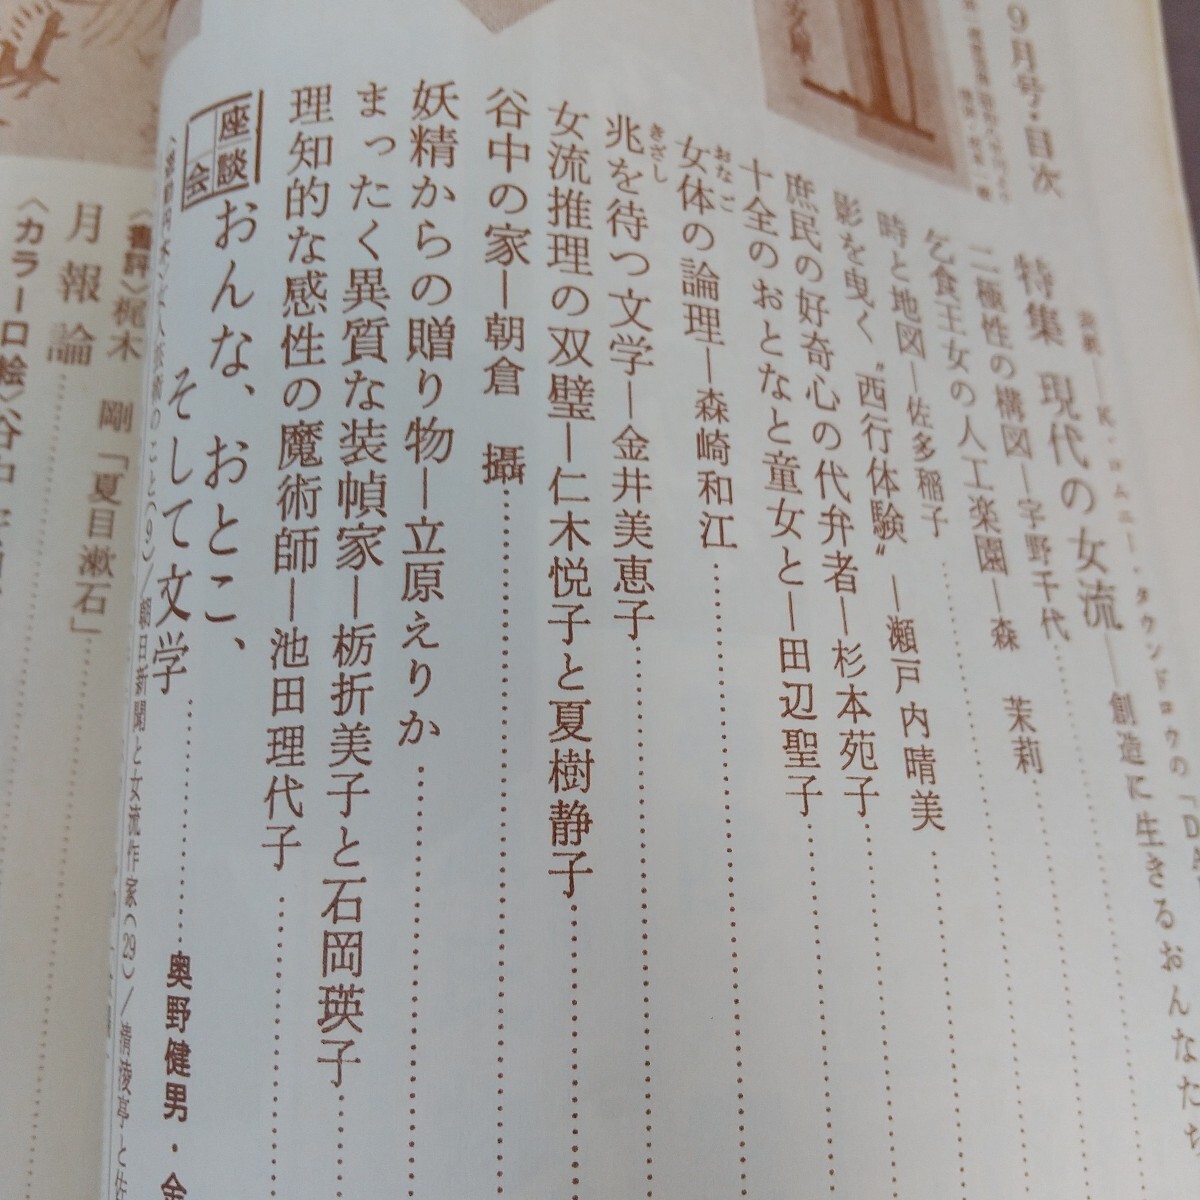 9月号・目次
特集 現代の女流――創造に生きるおんなたち
二極性の構図―宇野千代
乞食王女の人工楽園―森 茉莉
時と地図―佐多稲子
影を曳く〝西行体験〟―瀬戸内晴美
庶民の好奇心の代弁者―杉本苑子
十全のおとなと童女と―田辺聖子
女体の論理―森崎和江
おなご
兆を待つ文学―金井美恵子
きざし
女流推理の双璧―仁木悦子と夏樹静子
谷中の家―朝倉 攝
妖精からの贈り物―立原えりか
まったく異質な装幀家―栃折美子と石岡瑛子
理知的な感性の魔術師―池田理代子
座談会
おんな、おとこ、
そして文学
奥野健男・金
(9)/朝日新聞と女流作家(29)/清淩亭と佐
〈書評〉梶木 剛「夏目漱石」
月報論
〈カラー口絵〉谷中